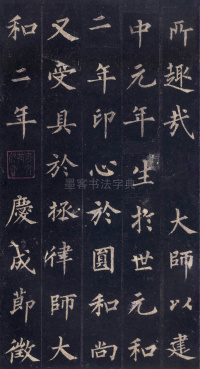 所趣哉 大師以建
中元年生於世元和
二年印心於圓和尚
又受具於拯律師大
和二年 慶成節徵
墨客书法字典